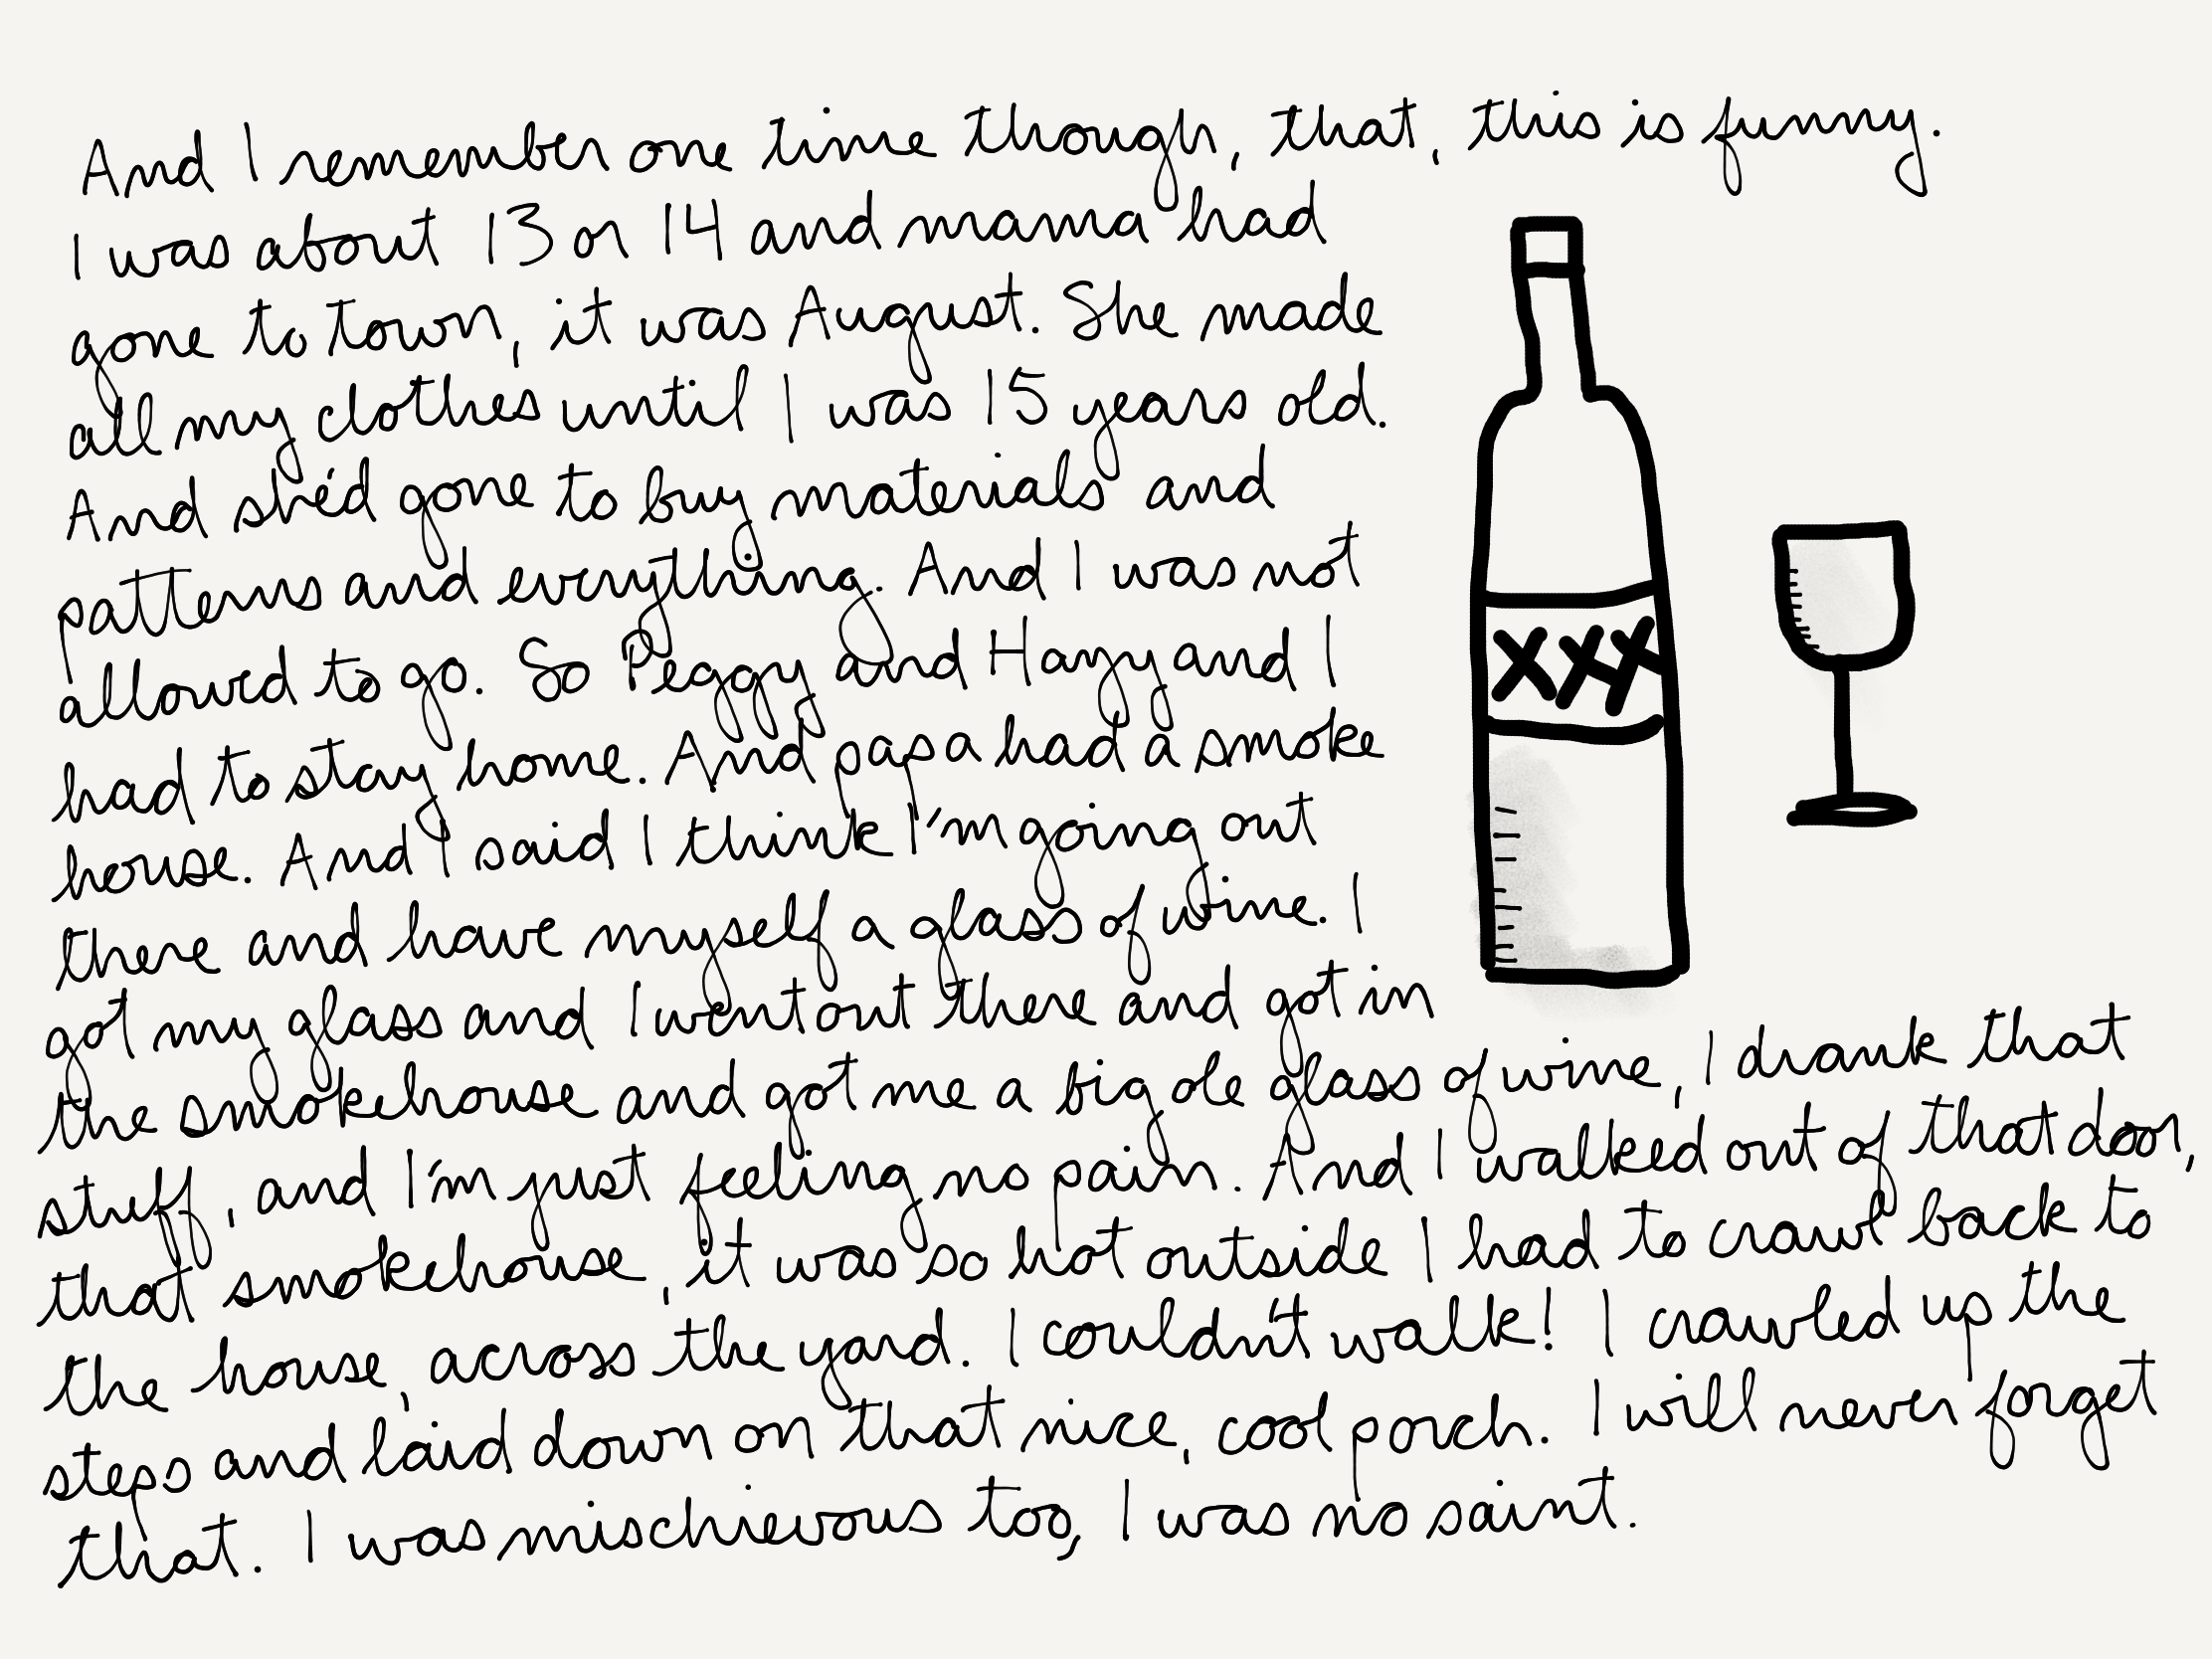 And I remember one time though, that, this is funny.
I was about 13 or 14 and mama had
gone to town, it was August. She made
all my clothes until I was 15 years old.
And she'd gone to buy materials and
patterns and everything. And I was not
allowed to go. So Peggy and and I
had to stay home. And papa had a smoke
house. And I said I think I'm going out
there and have myself a glass of wine. I
got my glass and I went out there and got in
XXX
the smokehouse and got me a big ole glass of wine, I drank that
stuff, and I'm just feeling no pain. And I walked out of that door,
that smokehouse, it was so hot outside I had to crawl back to
the house, across the yard. I couldn't walk! I crawled up the
steps and laid down on that nice, cool porch. I will never forget
that. I was mischievous too, I was no saint.